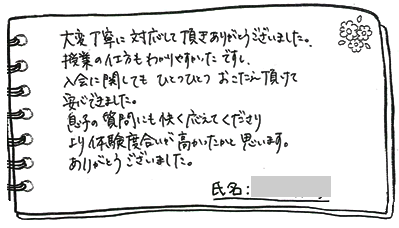 大変丁寧に対応して頂きありがとうございました。
授業の仕方もわかりやすかったですし、
入会に関しても ひとつひとつ おこたえ頂けて
安心できました。
息子の質問にも快く応えてくださり
より体験度合いが高かったかと思います。
ありがとうございました。
氏名: